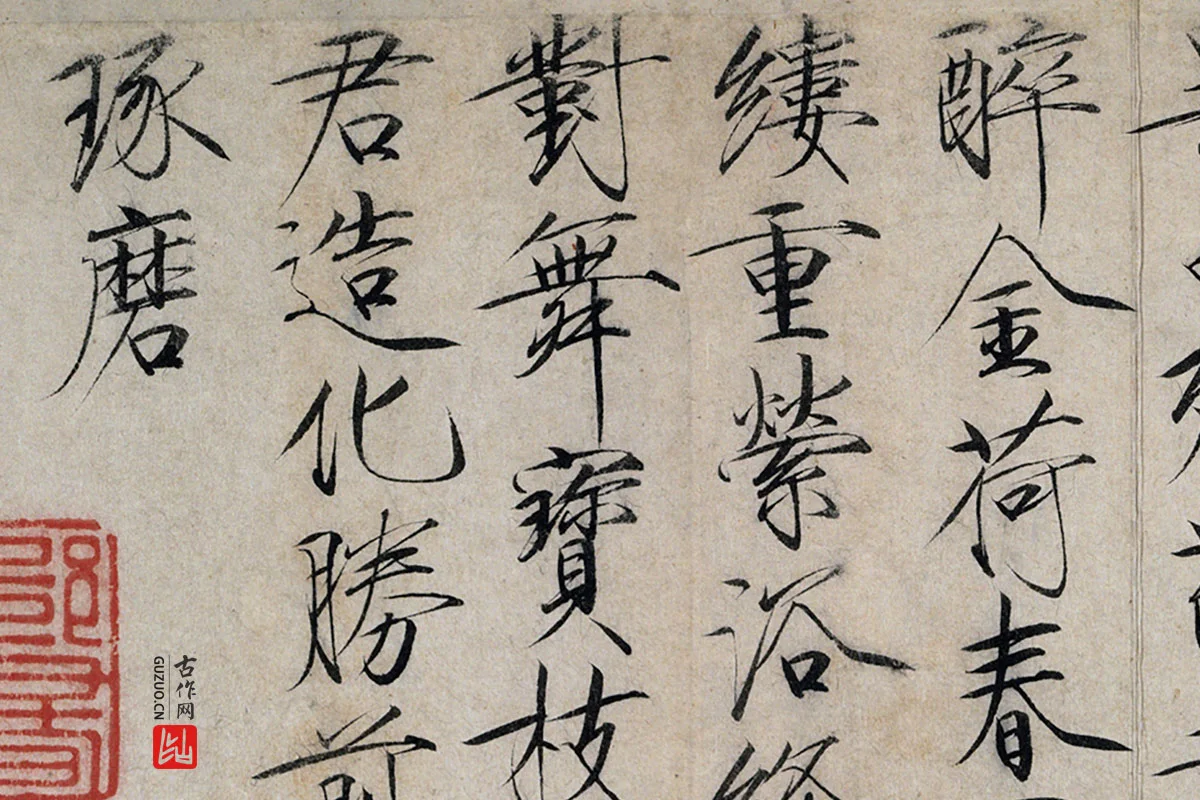 醉金荷春
縷重縈浴
對舞寶枝
君造化勝前
琢磨
古作网
GUZUO.CN